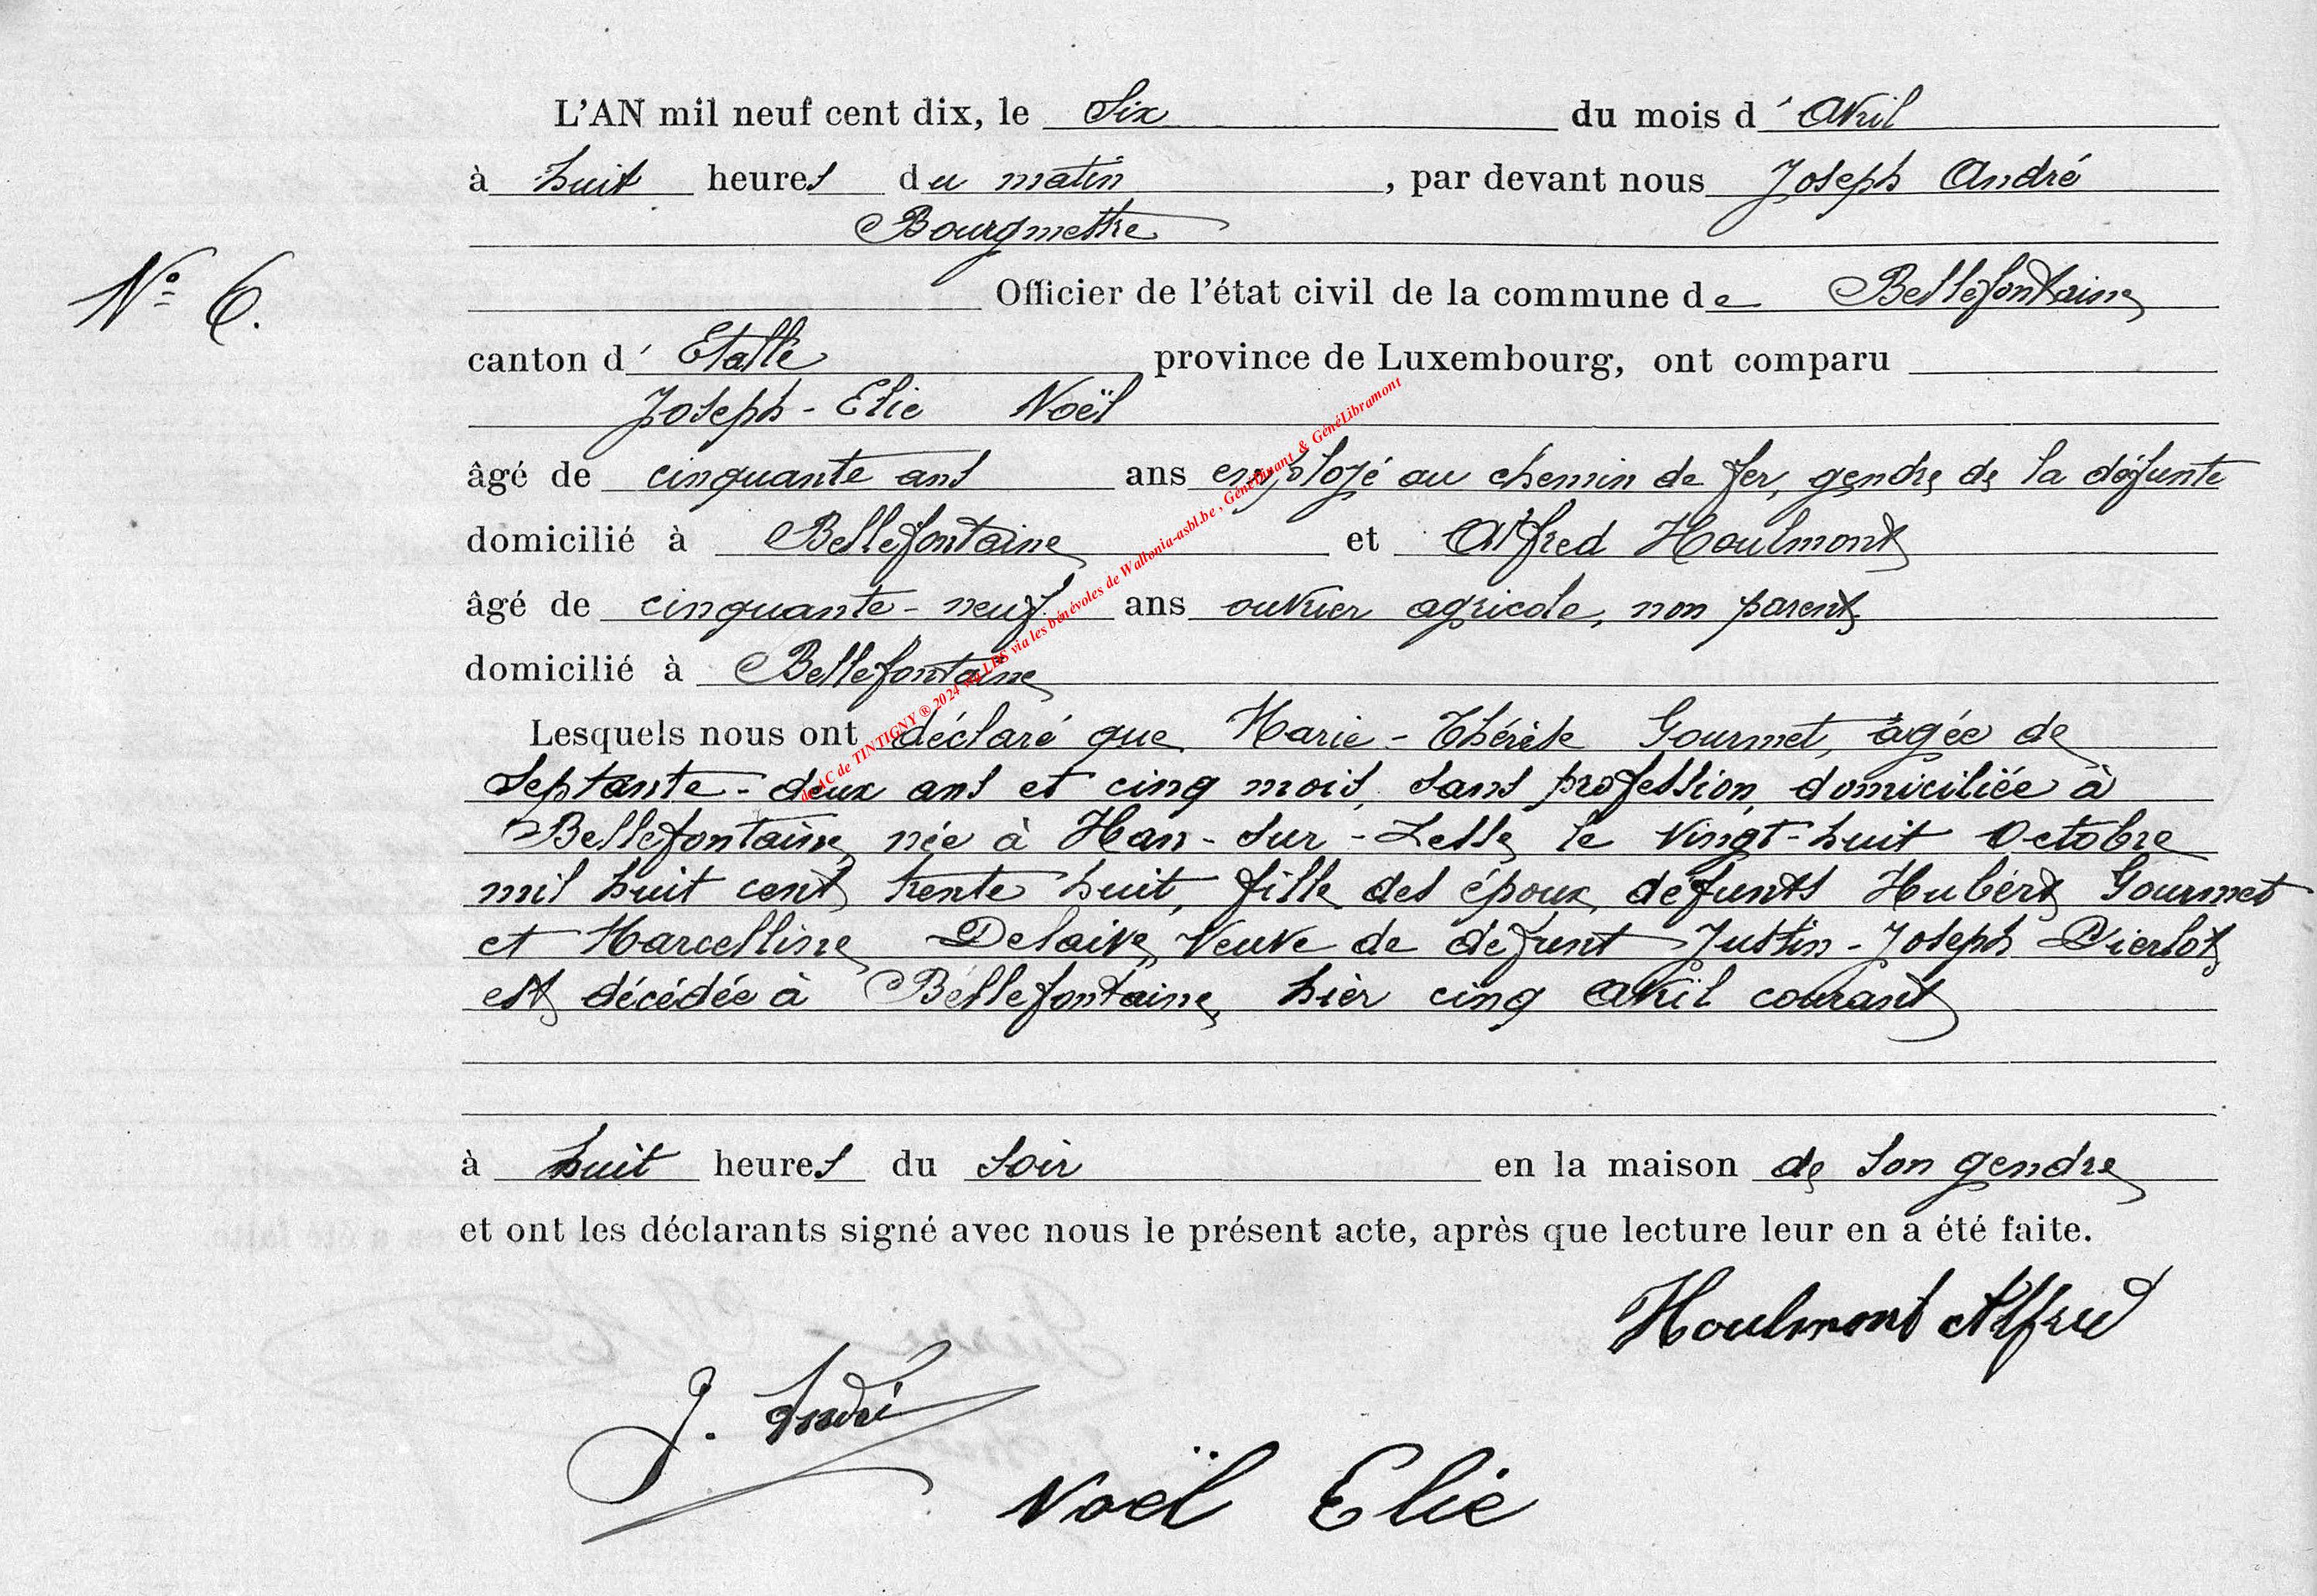 L'AN mil neuf cent dix, le Six du mois d'Avril
à huit heures du matin, par devant nous Joseph André
Bourgmestre
N° 6.
Officier de l'état civil de la commune de Bellefontaine
canton d'Etalle province de Luxembourg, ont comparu
Joseph-Elie Noël
âgé de cinquante ans ans employé au chemin de fer, gendre de la défunte
domicilié à Bellefontaine et Alfred Houlmont
âgé de cinquante-neuf ans ouvrier agricole, non parent
domicilié à Bellefontaine
Lesquels nous ont déclaré que Marie-Thérèse Gourmet, âgée de
septante-deux ans et cinq mois, sans profession, domiciliée à
Bellefontaine, née à Han-sur-Lesse le vingt-huit Octobre
mil huit cent trente huit, fille des époux défunts Hubert Gourmet
et Marcelline Delaive, Veuve de défunt Justin-Joseph Pierlot,
est décédée à Bellefontaine, hier cinq avril courant
à huit heures du soir en la maison de son gendre
et ont les déclarants signé avec nous le présent acte, après que lecture leur en a été faite.
Houlmont Alfred
J. André
Noël Elie
de AC de TINTIGNY ® 2024 via LDS via les bénévoles de Wallonia-asbl.be, GénéDinant & GénéLibramont